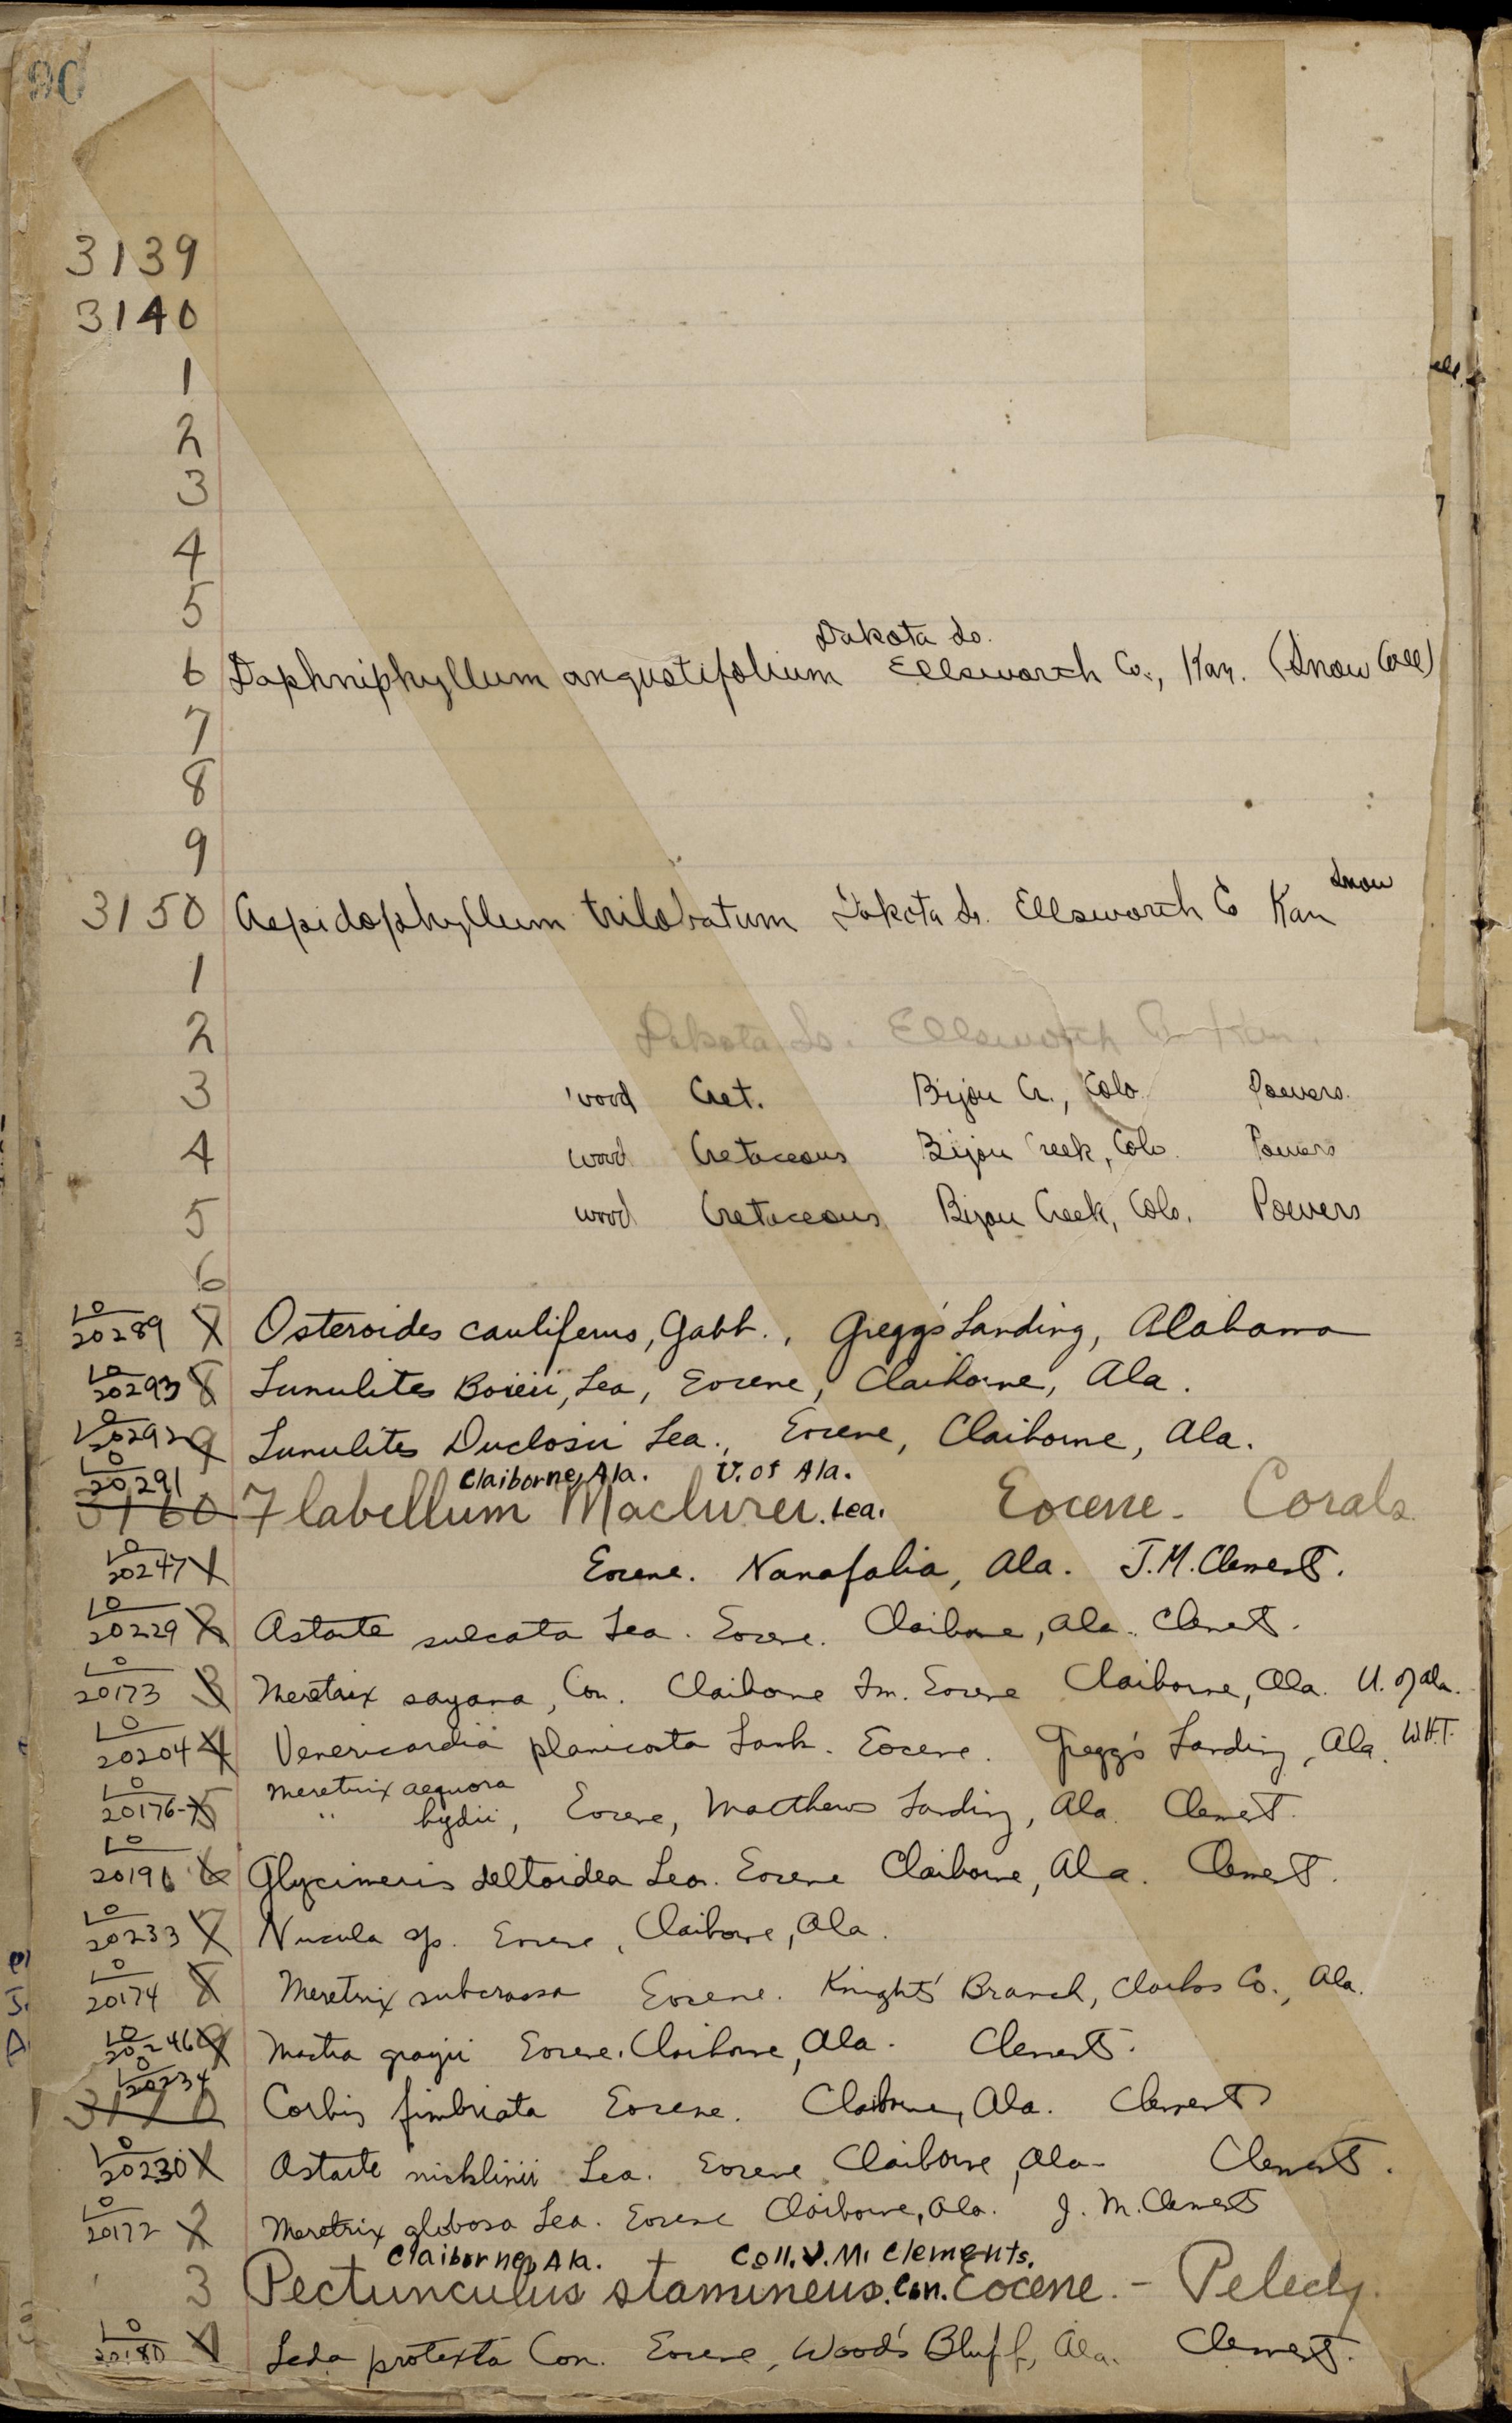 90
3139
3140
1
2
3
4
5
Dakota Ss.
6 Daphniphyllum angustifolium Ellsworth Co., Kan. (Snow Coll)
7
8
9
Snow
3150 Aspidophyllum trilobatum Dakota Ss. Ellsworth Co Kan
1
2 Dakota Ss. Ellsworth Co Kan.
3 wood Cret. Bijou Cr., Colo. Powers.
4 wood Cretaceous Bijou Creek, Colo. Powers
5 wood Cretaceous Bijou Creek, Colo. Powers
6
LO
20289 7 Osteroides cauliferus, Gabb., Gregg's Landing, Alabama
LO
20293 8 Lunulites Boueii, Lea, Eocene, Claiborne, Ala.
LO
20292 9 Lunulites Duclosii Lea., Eocene, Claiborne, Ala.
LO
20291 Claiborne, Ala. U. of Ala.
3160 Flabellum Maclurei. Lea. Eocene. Corals
LO
20247 1 Eocene. Nanafalia, Ala. J. M. Clements.
LO
20229 2 Astarte sulcata Lea. Eocene. Claiborne, Ala. Clements.
LO
20173 3 Meretrix sayana, Con. Claiborne Fm. Eocene Claiborne, Ala. U. of Ala.
LO
20204 4 Venericardia planicosta Lamk. Eocene. Gregg's Landing, Ala. W.H.T.
LO Meretrix aequora
20176-7 5 " hydii, Eocene, Matthews Landing, Ala. Clements.
LO
20196 6 Glycimeris deltoidea Lea. Eocene Claiborne, Ala. Clements.
LO
20233 7 Nucula sp. Eocene, Claiborne, Ala.
LO
20174 8 Meretrix subcrassa Eocene. Knight's Branch, Clarke Co., Ala.
LO
20246 9 Mactra grayii Eocene. Claiborne, Ala. Clements.
LO
20234
3170 Corbis fimbriata Eocene. Claiborne, Ala. Clements
LO
20230 1 Astarte nicklinii Lea. Eocene Claiborne, Ala. Clements.
LO
20172 2 Meretrix globosa Lea. Eocene Claiborne, Ala. J. M. Clements
Claiborne, Ala. + Coll. J. M. Clements.
3 Pectunculus stamineus. Con. Eocene. - Pelecy.
LO
20180 4 Leda protexta Con. Eocene, Wood's Bluff, Ala. Clements.